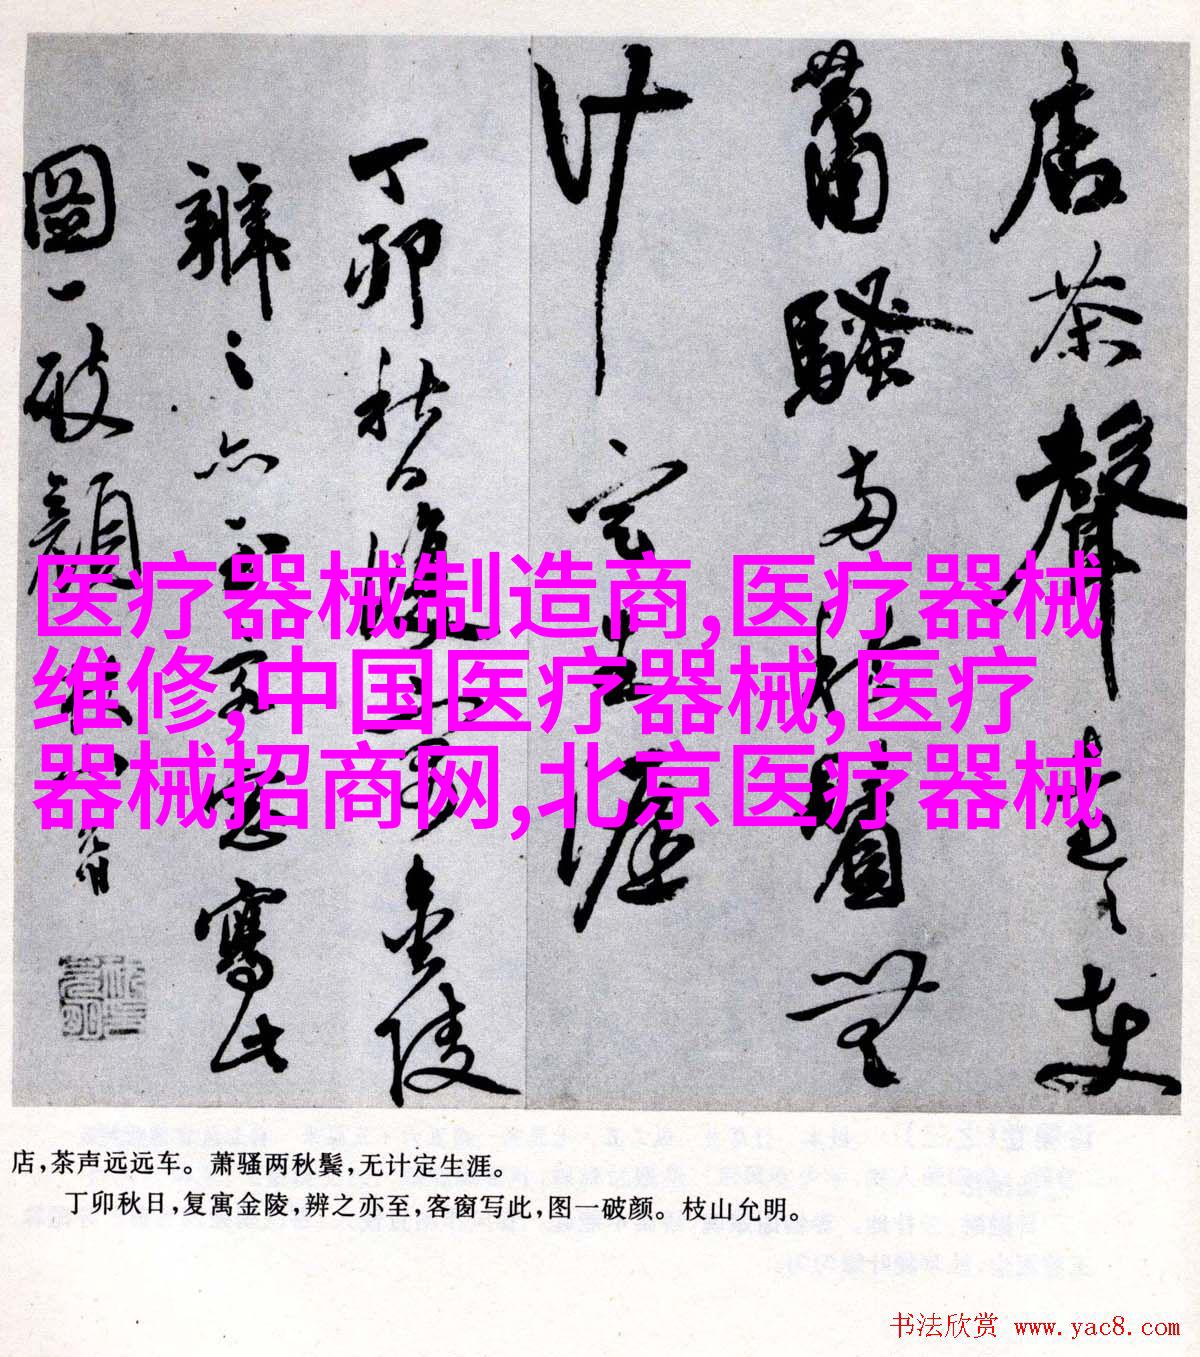 店茶聲遠々車
蕭騷兩秋鬢無
計定生涯
丁卯秋日復寓金陵
辨之亦至客窓寫此
圖一破顏枝山允明
医疗器械制造商,医疗器械
维修,中国医疗器械,医疗
器械招商网,北京医疗器械
店,茶声远远车。萧骚两秋鬓,无计定生涯。
丁卯秋日,复寓金陵,辨之亦至,客窗写此,图一破颜。枝山允明。
书法欣赏 www.yac8.com